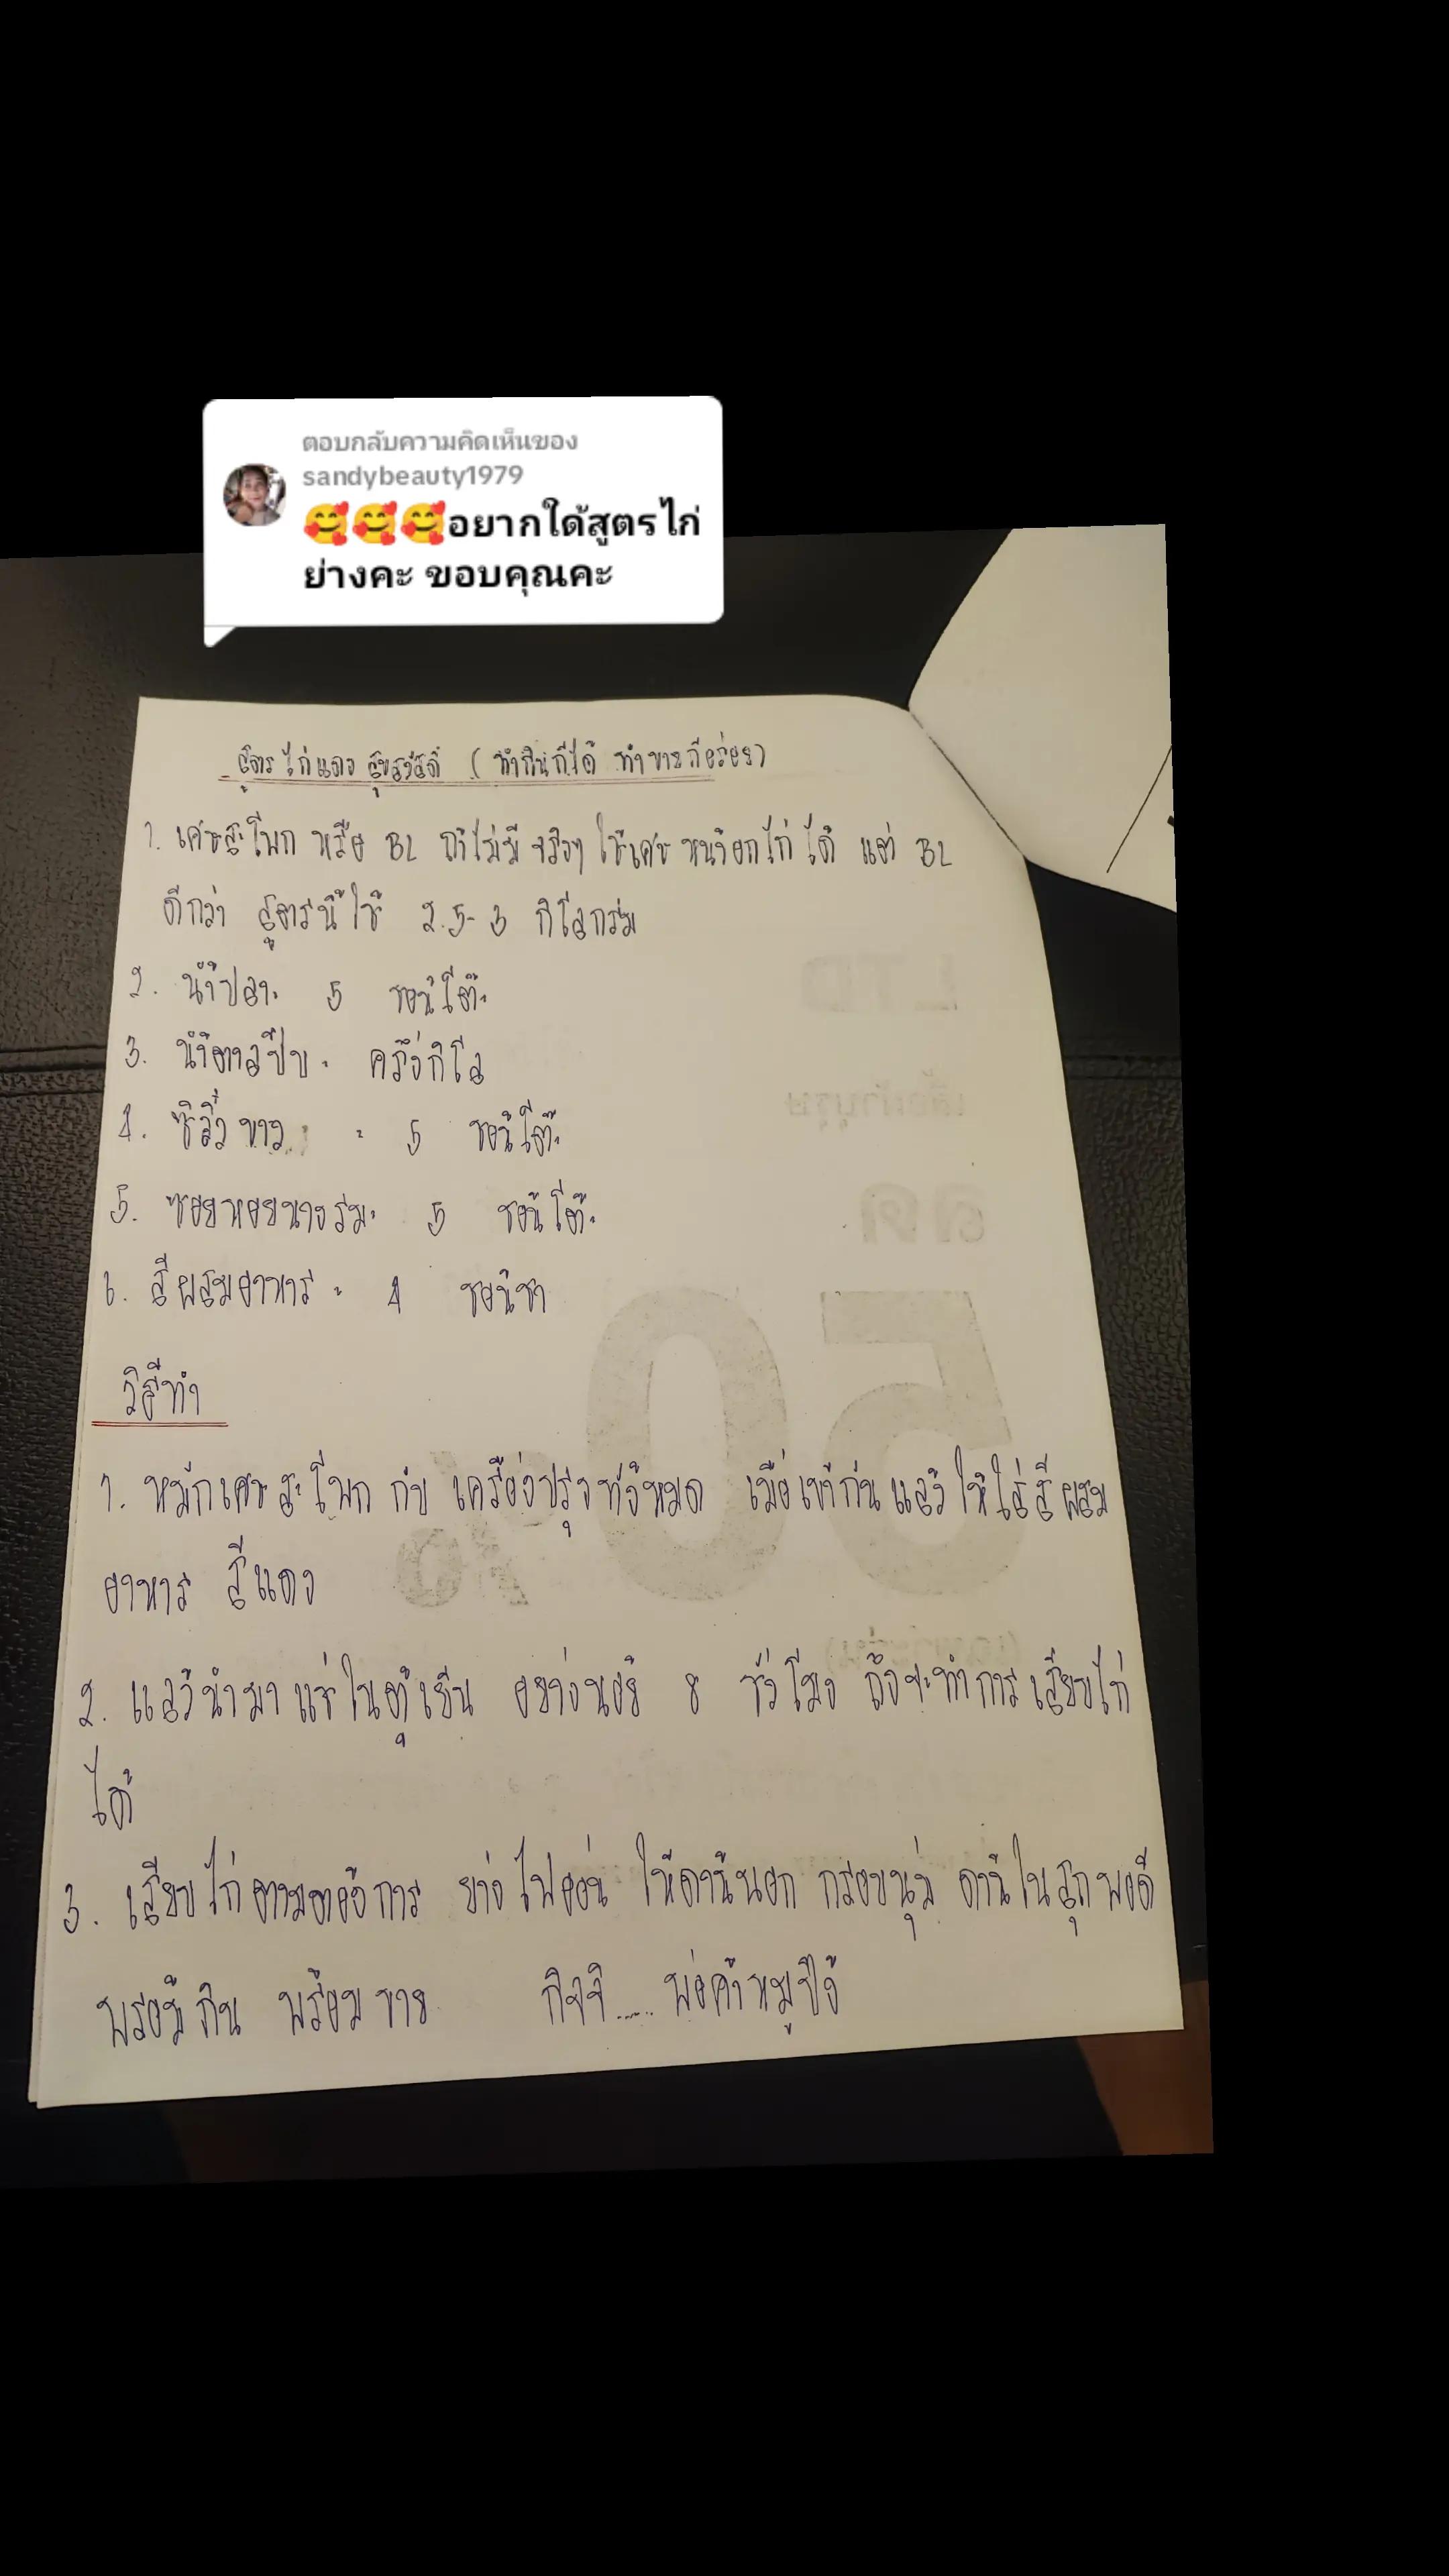 ตอบกลับความคิดเห็นของ
sandybeauty1979
🥰🥰🥰อยากใด้สูตรไก่
ย่างคะ ขอบคุณคะ
สูตรไก่แดง สุขสวัสดิ์ (ทำกินก็ได้ ทำขายก็อร่อย)
1. เศษสะโพก หรือ BL ถ้าไม่มีจริงๆ ใช้เศษหน้าอกไก่ได้ แต่ BL
ดีกว่า สูตรนี้ใช้ 2.5-3 กิโลกรัม
2. น้ำปลา = 5 ช้อนโต๊ะ
3. น้ำตาลปี๊บ = ครึ่งกิโล
4. ซีอิ๊วขาว = 5 ช้อนโต๊ะ
5. ซอยหอยนางรม = 5 ช้อนโต๊ะ
6. สีผสมอาหาร = 4 ช้อนชา
วิธีทำ
1. หมักเศษสะโพก กับ เครื่องปรุงทั้งหมด เมื่อเข้ากันแล้วให้ใส่สีผสม
อาหาร สีแดง
2. แล้วนำมาแช่ในตู้เย็น อย่างน้อย 8 ชั่วโมง ถึงจะทำการเสียบไก่
ได้
3. เสียบไก่ตามต้องการ ย่างไฟอ่อน ให้ด้านนอก กรอบนุ่ม ด้านในสุกพอดี
พร้อมกิน พร้อมขาย กิจจิ..... พ่อค้าหมูปิ้ง
LTD
ลด
50%